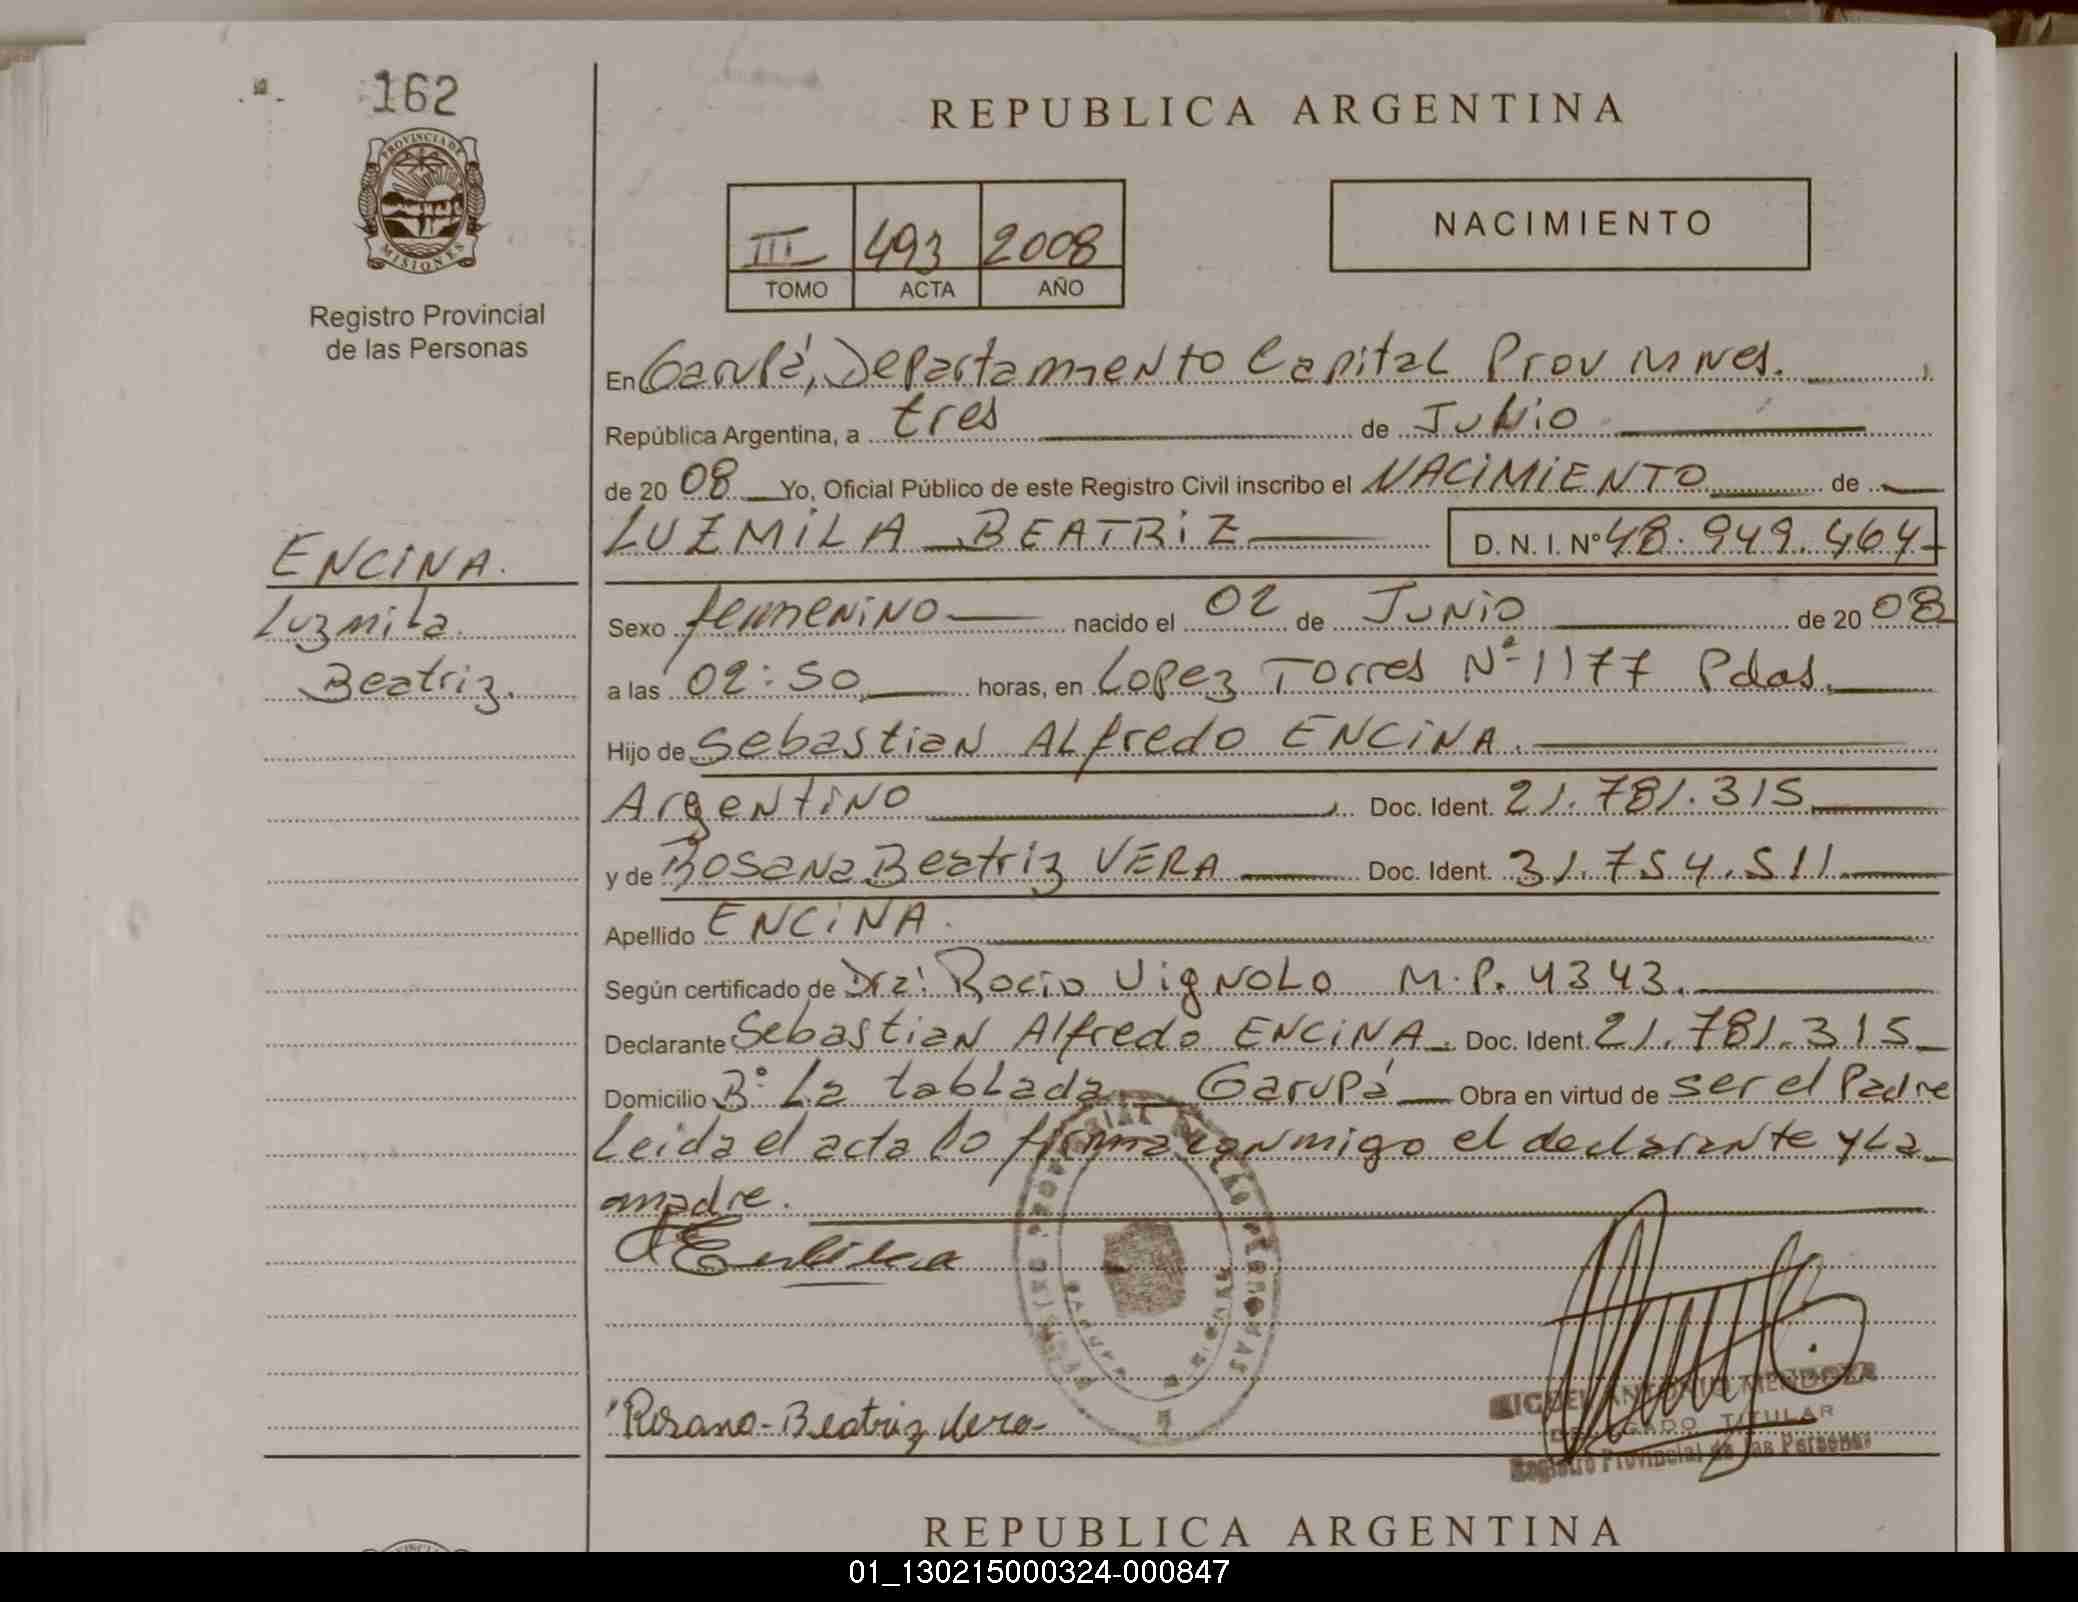 162
PROVINCIA DE
MISIONES
Registro Provincial
de las Personas
REPUBLICA ARGENTINA
III 493 2008
TOMO ACTA AÑO
NACIMIENTO
En Garupá, Departamento Capital Prov Mnes.
República Argentina, a tres de Junio
de 20 08 Yo, Oficial Público de este Registro Civil inscribo el NACIMIENTO de
LUZMILA BEATRIZ D. N. I. Nº 48.949.464
ENCINA.
Luzmila
Beatriz.
Sexo femenino nacido el 02 de Junio de 20 08
a las 02:50 horas, en Lopez Torres Nº 1177 Pdas.
Hijo de Sebastian Alfredo ENCINA.
Argentino Doc. Ident. 21.781.315
y de Rosana Beatriz VERA Doc. Ident. 31.754.511
Apellido ENCINA.
Según certificado de Dra: Rocio Vignolo M.P. 4343.
Declarante Sebastian Alfredo ENCINA. Doc. Ident. 21.781.315
Domicilio Bº La tablada Garupá Obra en virtud de ser el Padre
Leida el acta lo firma conmigo el declarante y La
madre.
Rosana-Beatriz Vera
MIGUEL ANTONIO MENDOZA
DELEGADO TITULAR
Registro Provincial de las Personas
REPUBLICA ARGENTINA
01_130215000324-000847